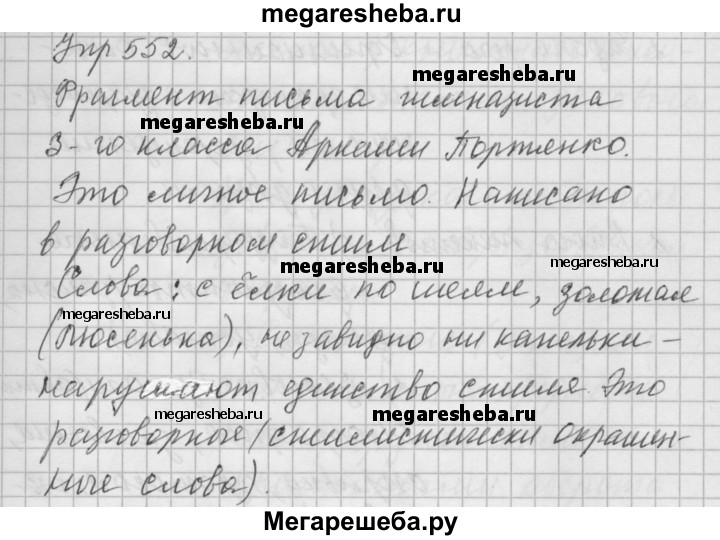 megaresheba.ru
Упр 552.
megaresheba.ru
Фрагмент письма гимназиста
megaresheba.ru
3-го класса Аркаши Портленко.
Это личное письмо. Написано
в разговорном стиле
megaresheba.ru
megaresheba.ru
Слова: с ёлки по шеям, золотая
megaresheba.ru
(Люсенька), не завидно ни капельки -
нарушают единство стиля. Это
megaresheba.ru
megaresheba.ru
разговорные (стилистически окрашен-
ные слова).
Мегарешеба.ру